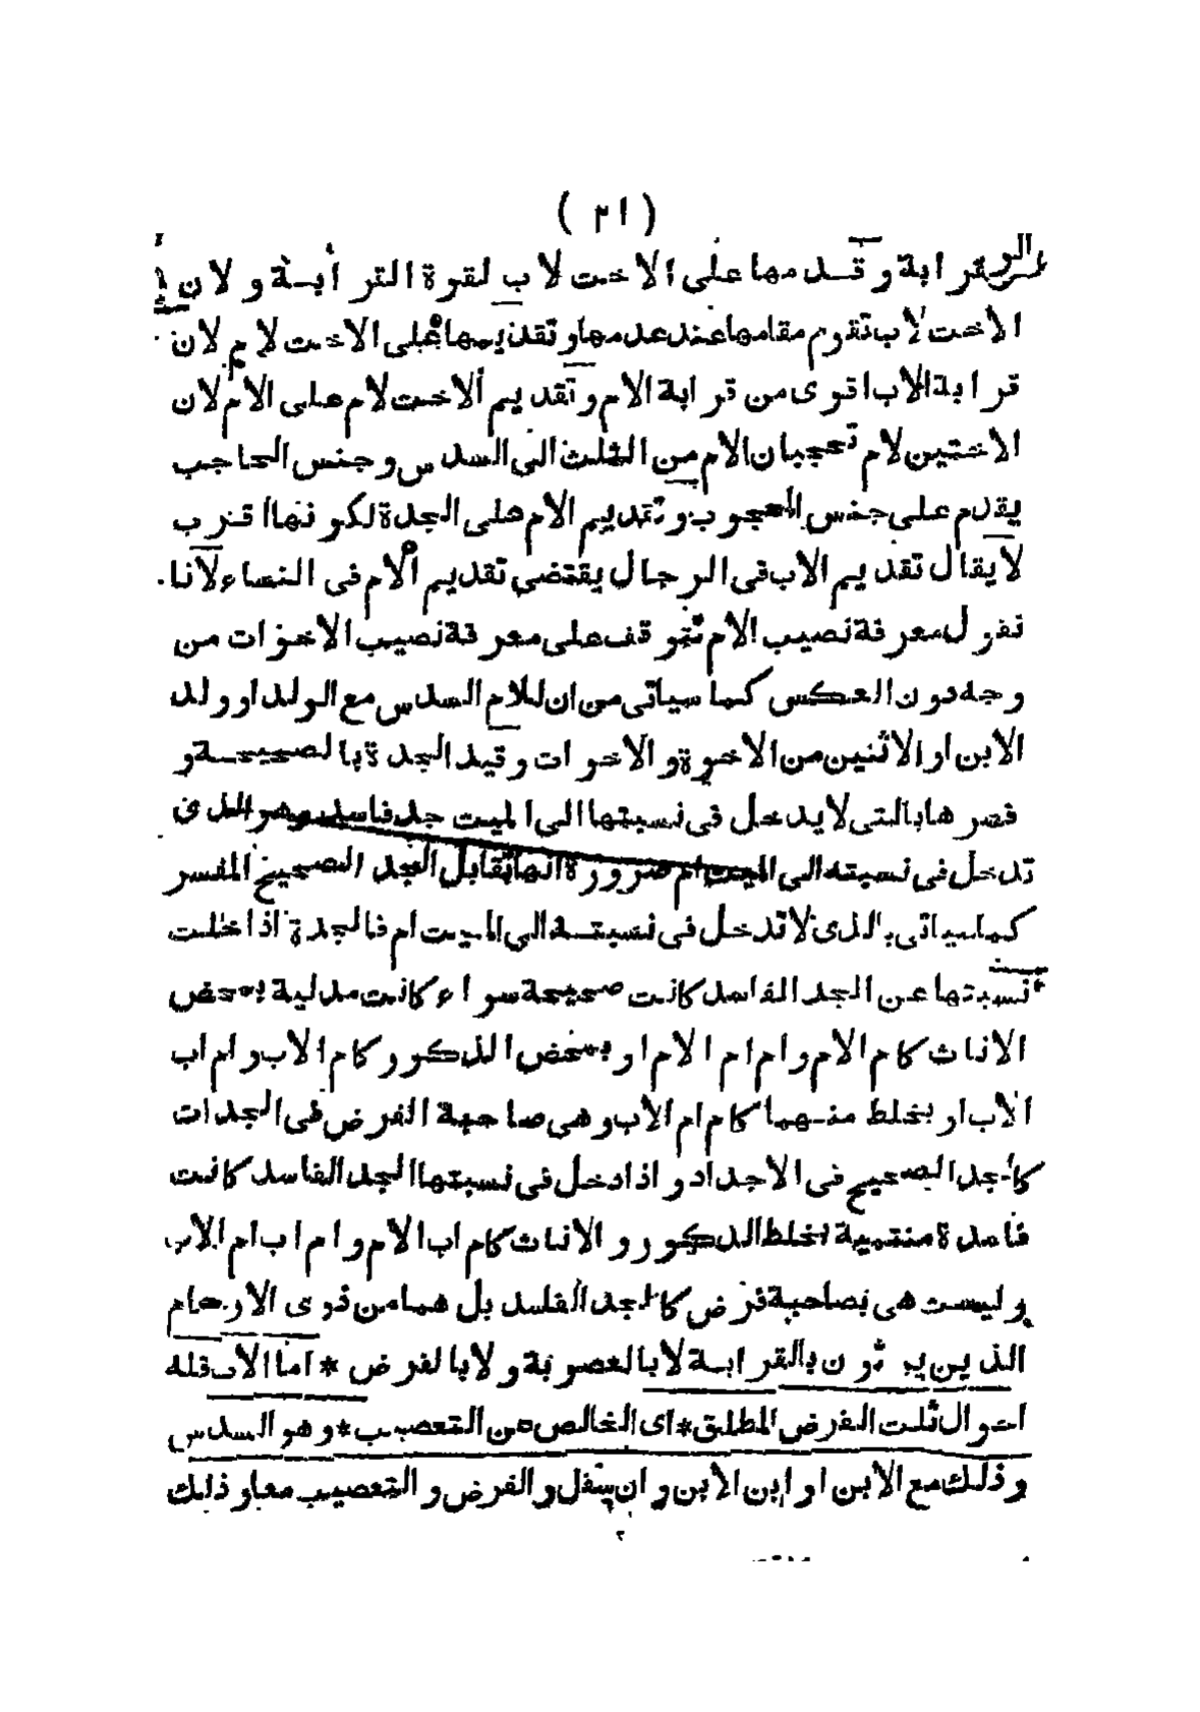 ( ٢١ )
قرابة وقدمها على الاخت لاب لقوة القرابة ولان
الاخت لاب تقوم مقامها عند عدمها وتقديمها على الاخت لام لان
قرابة الاب اقوى من قرابة الام وتقديم الاخت لام على الام لان
الاختين لام تحجبان الام من الثلث الى السدس وجنس الحاجب
يقدم على جنس المحجوب وتقديم الام على الجدة لكونها اقرب
لا يقال تقديم الاب فى الرجال يقتضى تقديم الام فى النساء لانا
نقول معرفة نصيب الام تتوقف على معرفة نصيب الاخوات من
وجه دون العكس كما سياتى من ان للام السدس مع الولد او ولد
الابن او الاثنين من الاخوة والاخوات وقيد الجدة بالصحيحة و
فسرها بالتى لا يدخل فى نسبتها الى الميت جد فاسد وهو الذى
تدخل فى نسبته الى الميت ام ضرورة انها تقابل الجد الصحيح المفسر
كما سياتى بالذى لا تدخل فى نسبته الى الميت ام فالجدة اذا خلت
نسبتها عن الجد الفاسد كانت صحيحة سواء كانت مدلية بمحض
الاناث كام الام وام ام الام او بمحض الذكور كام الاب وام اب
الاب او بخلط منهما كام ام الاب وهى صاحبة الفرض فى الجدات
كالجد الصحيح فى الاجداد واذا دخل فى نسبتها الجد الفاسد كانت
فاسدة منتمية بخلط الذكور والاناث كام اب الام وام اب ام الاب
وليست هى بصاحبة فرض كالجد الفاسد بل هما من ذوى الارحام
الذين يرثون بالقرابة لا بالعصوبة ولا بالفرض * اما الاب فله
احوال ثلث الفرض المطلق * اى الخالص من التعصيب * وهو السدس
وذلك مع الابن او ابن الابن وان سفل والفرض والتعصيب معا وذلك
٢